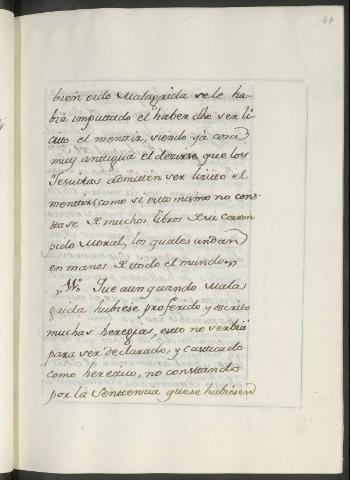 60
bien oido Malagrida se le ha-
bia imputado el haber dho ser li-
cito el mentir, siendo ya cosa
muy antigua el decirse, que los
Jesuitas admitten ser licito el
mentir; como si esto mismo no cons-
tase de muchos libros de su corrom-
pido Moral, los quales andan
en manos de todo el mundo.
Que aun quando Mala-
grida hubiese proferido y escrito
muchas heregias, esto no serbia
para ser declarado, y castigado
como heretico, no constando
por la Sentencia que se hubiesen